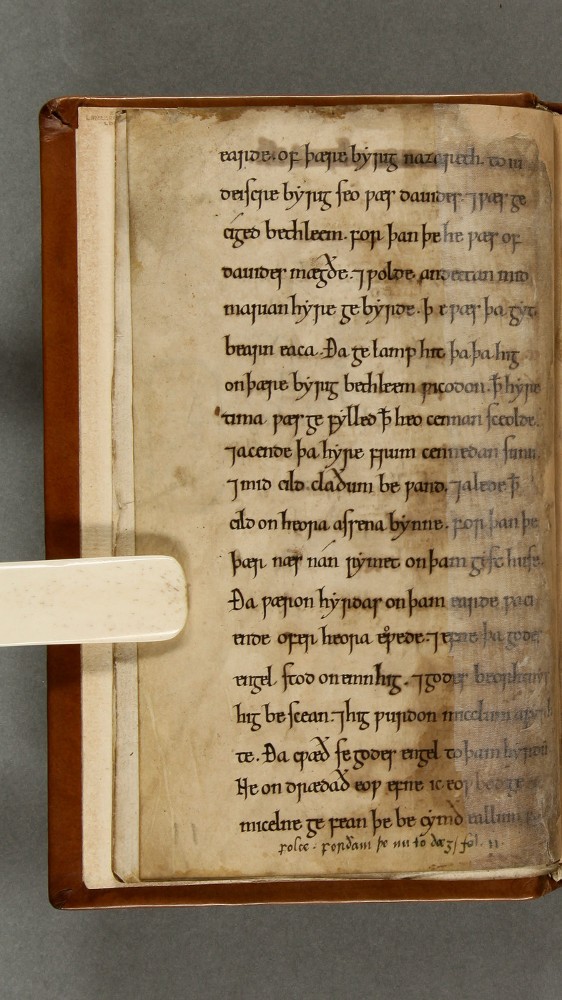 earde. of þære byrig nazareth. to iu
deiscre byrig seo ƿæs dauides. ⁊ ƿæs ge
ciged bethleem. for þan þe he ƿæs of
dauides mægðe. ⁊ ƿolde andettan mid
marian hyre ge byride. þ
bearn eaca. Ða ge lamp hit þa þa hig
on þære byrig bethleem ƿicodon. ꝥ hyre
tima ƿæs ge fylled ꝥ heo cennan sceolde.
⁊ acende þa hyre frum cennedan sunu.
⁊ mid cild claðum be ƿand. ⁊ alede ꝥ
cild on heora assena bynne. for þan þe
þær næs nán rymet on þam gist huse.
Ða ƿæron hyrdas on þam earde ƿaci
ende ofer heora eoƿede. ⁊ efne þa godes
engel stod on emn hig. ⁊ godes beorhtnys
hig be scean. ⁊ hig ƿurdon micclum
te. Ða cƿæð se godes engel to þam hyrdū
Ne on drædað eoƿ efne ic eoƿ bodge
micelne ge fean þe be cymð eallum
folce. forðam þe nu to dæg / fol. 11.